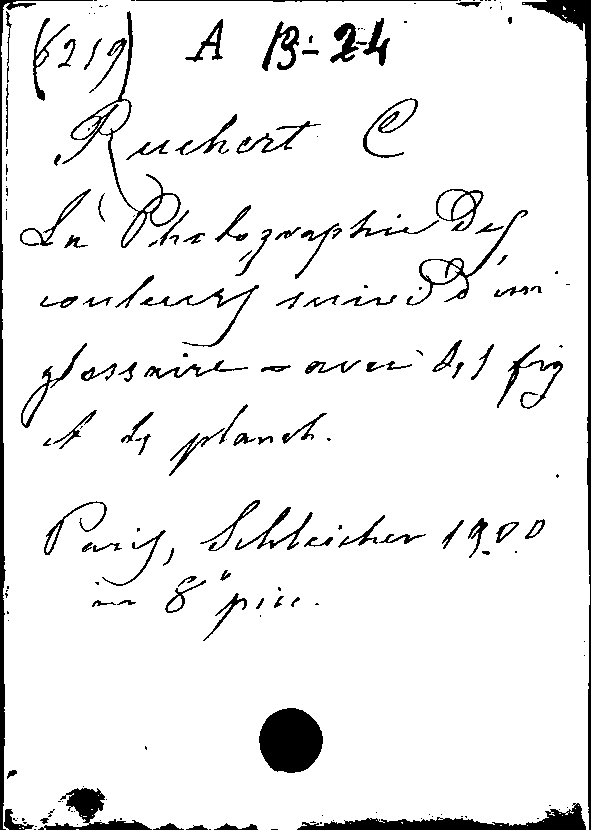 (6219) A 13-24
Ruckert C
La Photographie des
couleurs suivi d'un
glossaire - avec des fig
et de planch.
Paris, Schleicher 1900
in 8° picc.